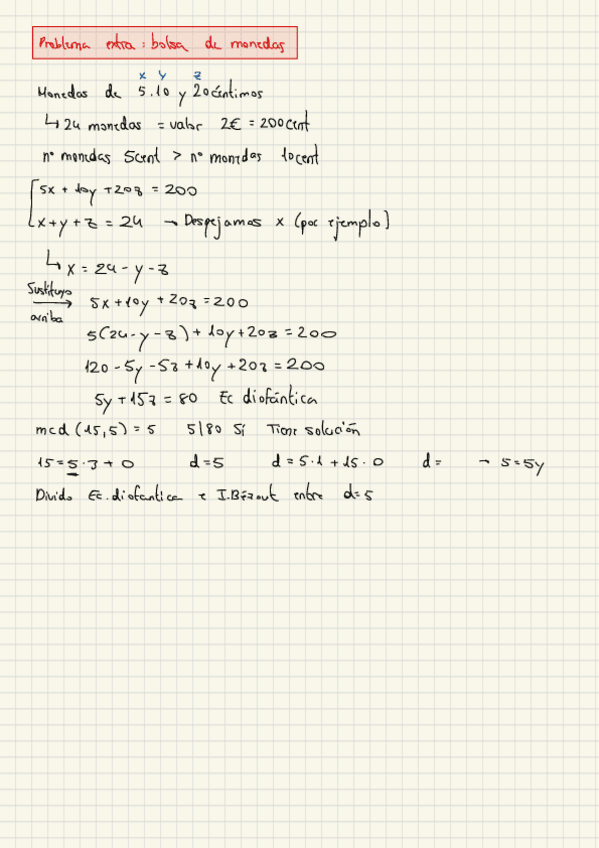 Problema extra: bolsa de monedas
x y z
Monedas de 5.10 y 20 céntimos
↳ 24 monedas = valor 2€ = 200 cent
nº monedas 5cent > nº monedas 10cent
5x + 10y + 20z = 200
x + y + z = 24 → Despejamos x (por ejemplo)
↳ x = 24 - y - z
Sustituyo arriba → 5x + 10y + 20z = 200
5(24 - y - z) + 10y + 20z = 200
120 - 5y - 5z + 10y + 20z = 200
5y + 15z = 80 Ec diofántica
mcd (15,5) = 5 5|80 Sí Tiene solución
15 = 5 · 3 + 0 d = 5 d = 5 · 1 + 15 · 0 d = → 5 = 5y
Divido Ec. diofantica e I. Bézout entre d = 5